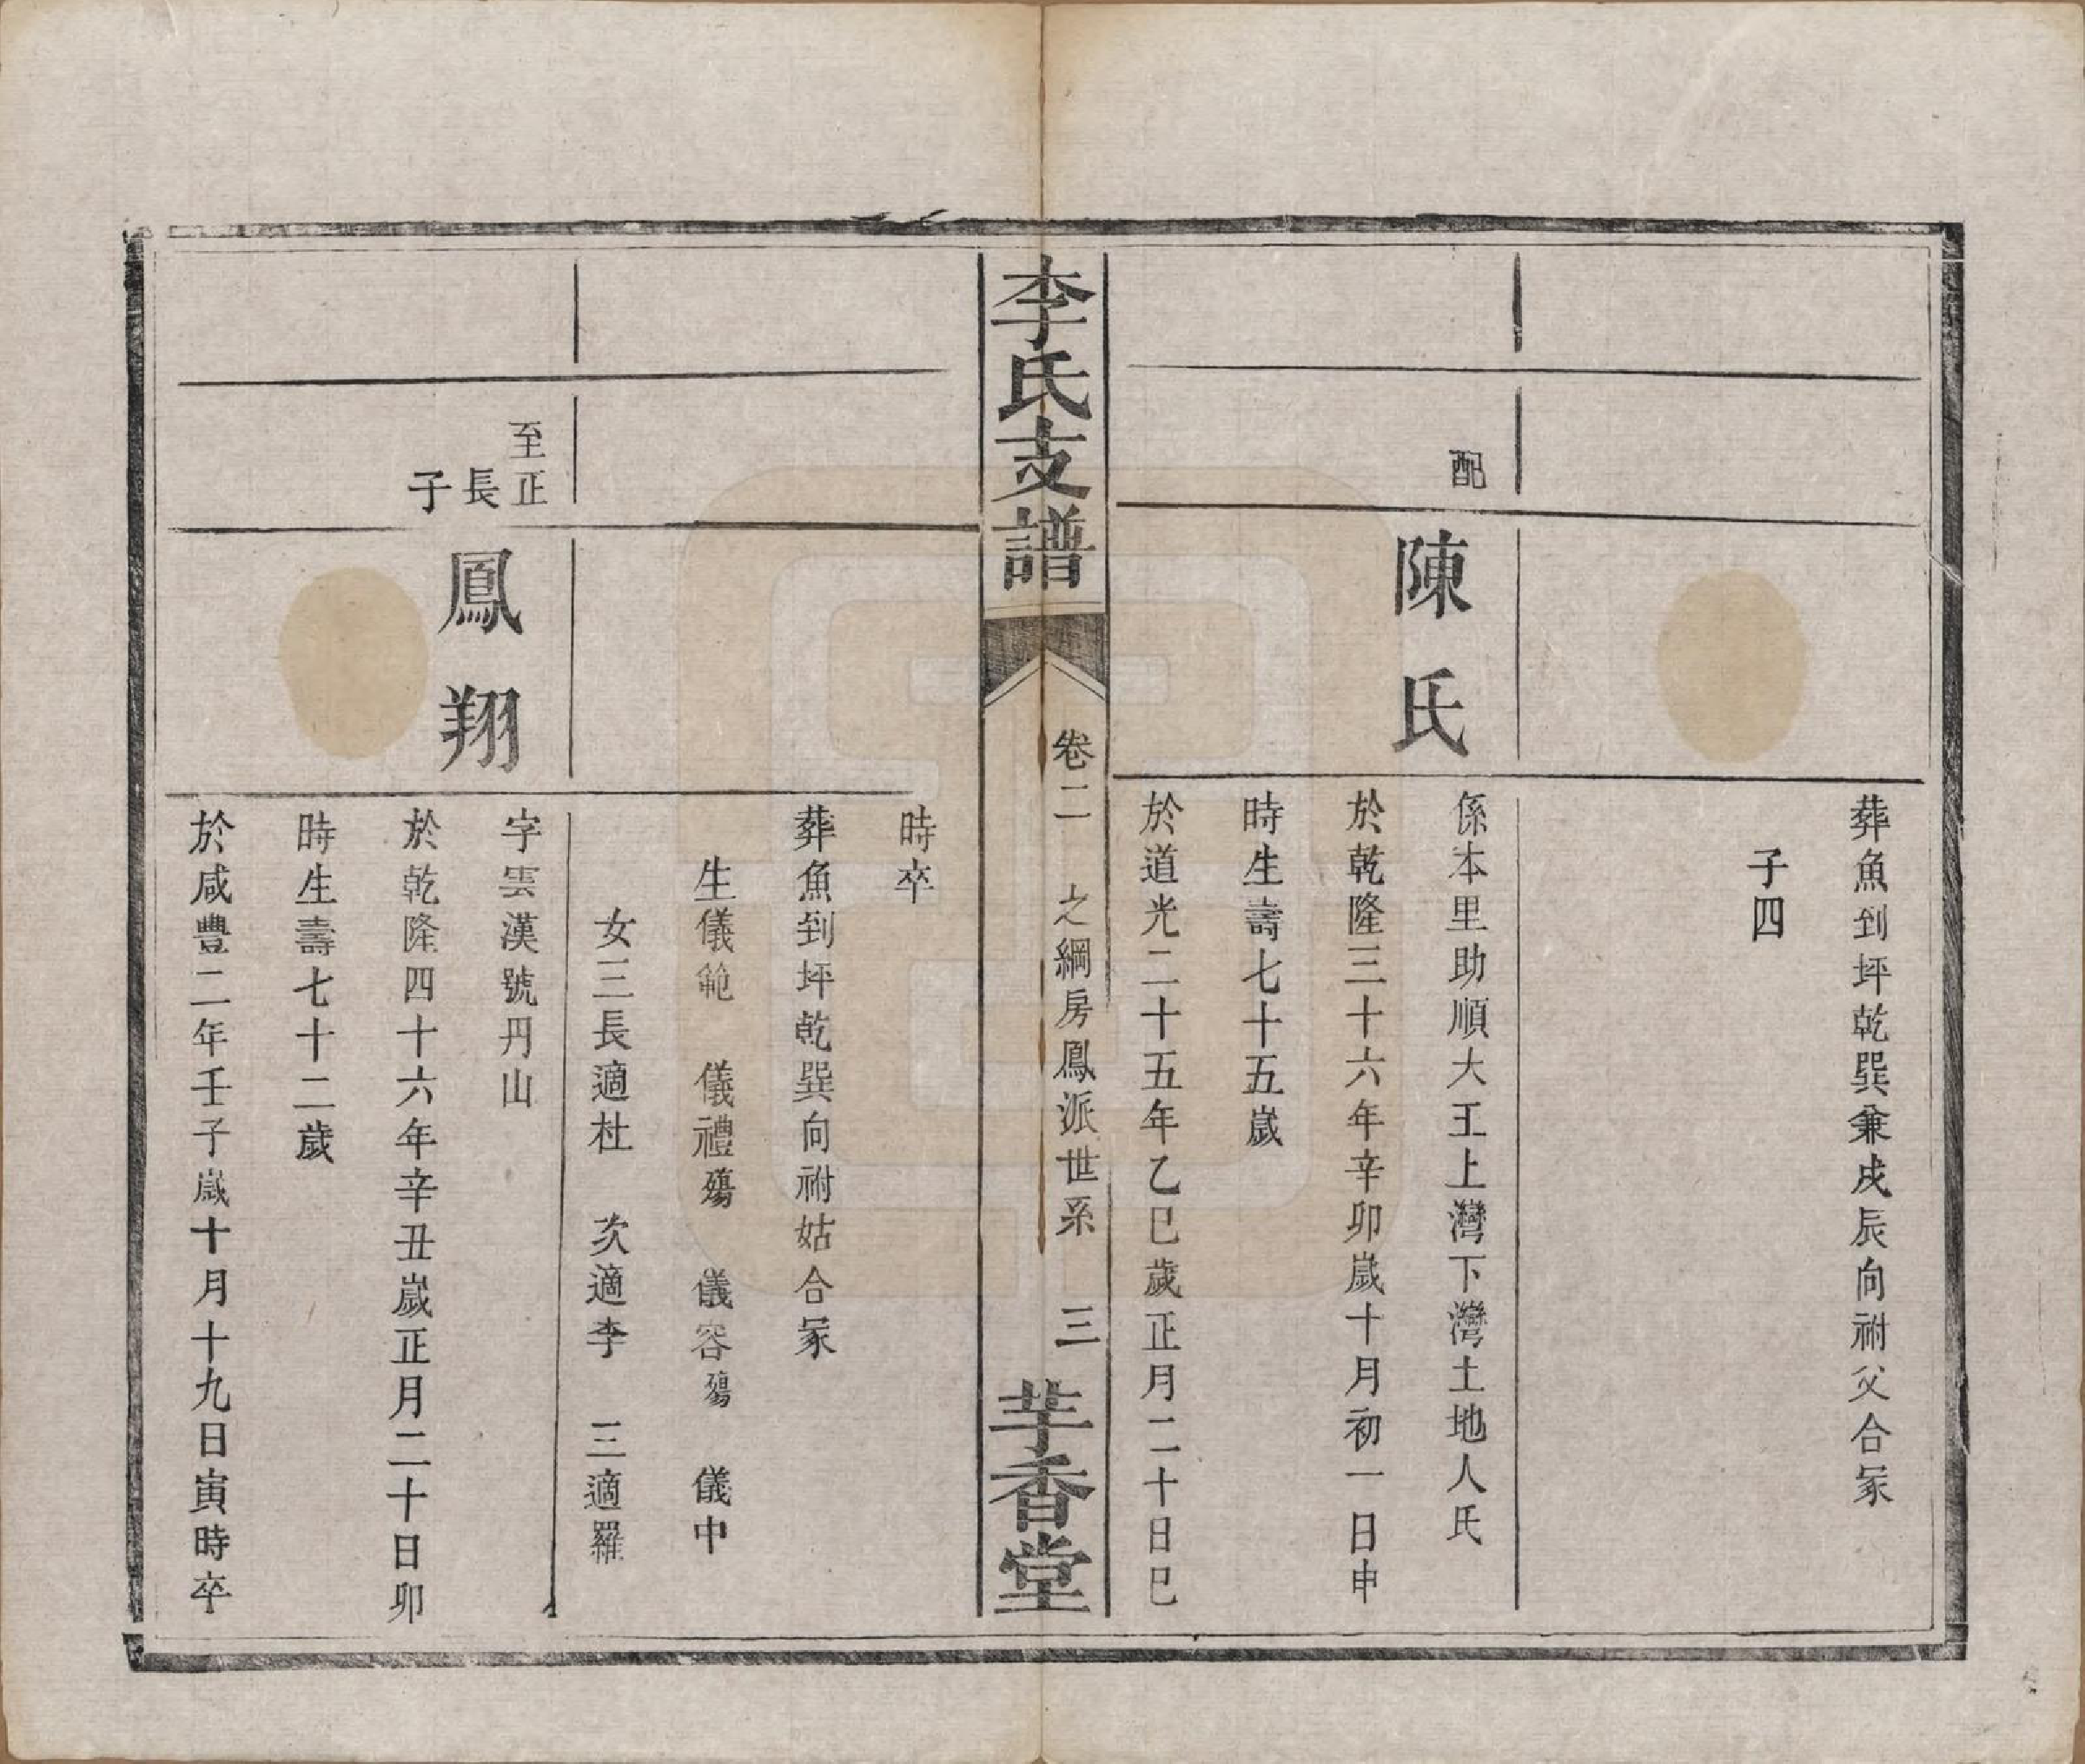 葬魚到坪乾巽兼戌辰向祔父合冢
子四
配
陳氏
係本里助順大王上灣下灣土地人氏
於乾隆三十六年辛卯歲十月初一日申
時生壽七十五歲
於道光二十五年乙巳歲正月二十日巳
李氏支譜
卷二 之綱房鳳派世系 三
芉香堂
時卒
葬魚到坪乾巽向祔姑合冢
生儀範 儀禮殤 儀容殤 儀中
女三長適杜 次適李 三適羅
至正
長
子
鳳翔
字雲漢號丹山
於乾隆四十六年辛丑歲正月二十日卯
時生壽七十二歲
於咸豐二年壬子歲十月十九日寅時卒